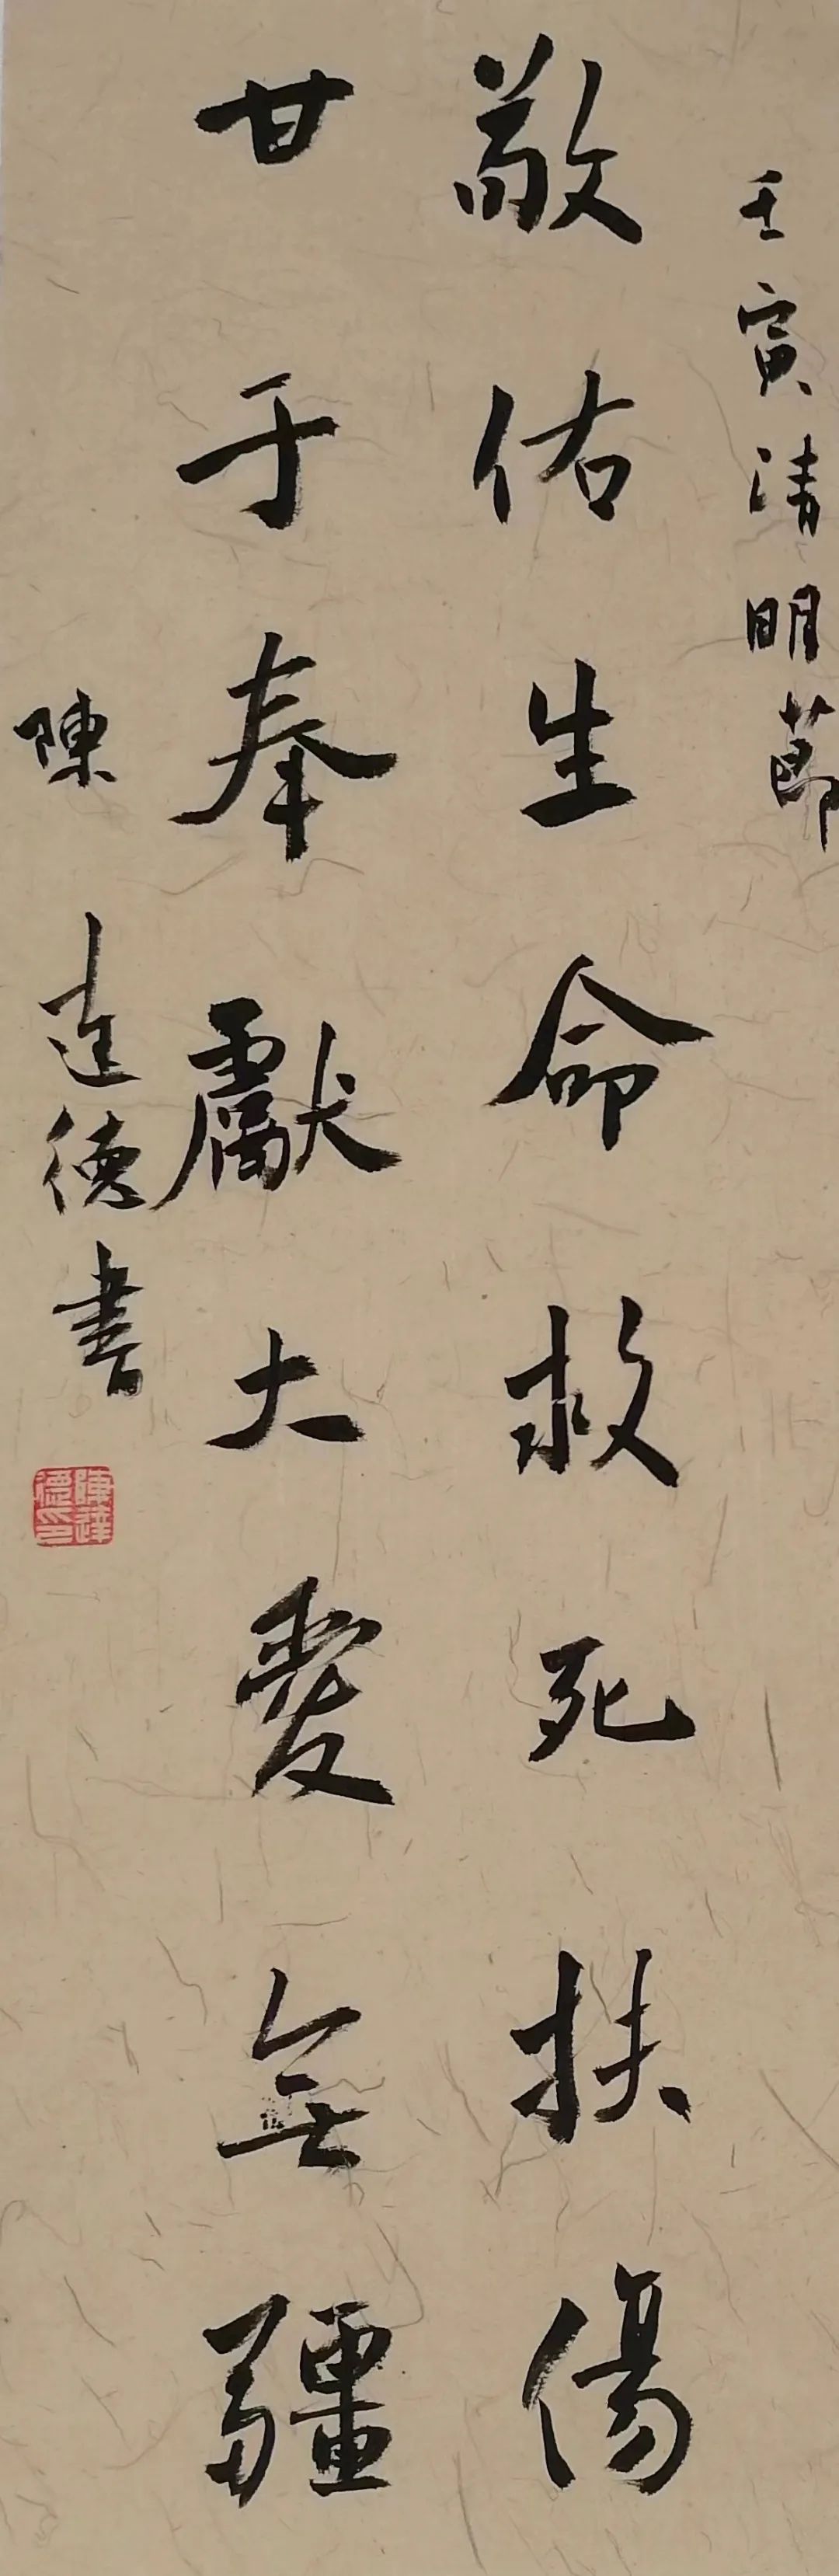 壬寅清明節
敬佑生命救死扶傷
甘于奉獻大愛無疆
陳達德書
陳達德印